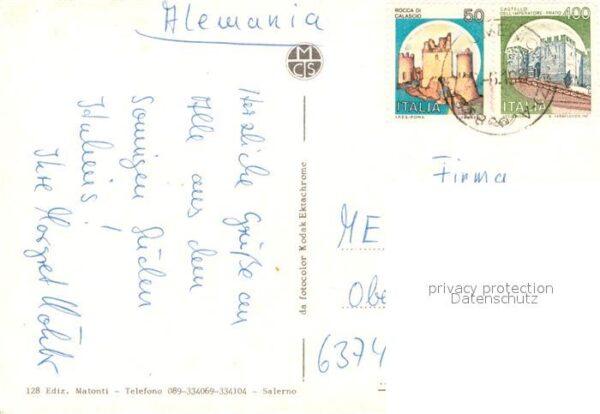 Alemania
ROCCA DI CALASCIO
50
ITALIA
I.P.Z.S.-ROMA
CASTELLO DELL'IMPERATORE-PRATO
400
ITALIA
MCS
Herzliche Grüße an
Alle aus dem
Sonnigen Süden
Italiens!
Ihre Margret
da fotocolor Kodak Ektachrome
Firma
ME
Obe
6374
privacy protection
Datenschutz
128 Ediz. Matonti - Telefono 089-334069-334104 - Salerno